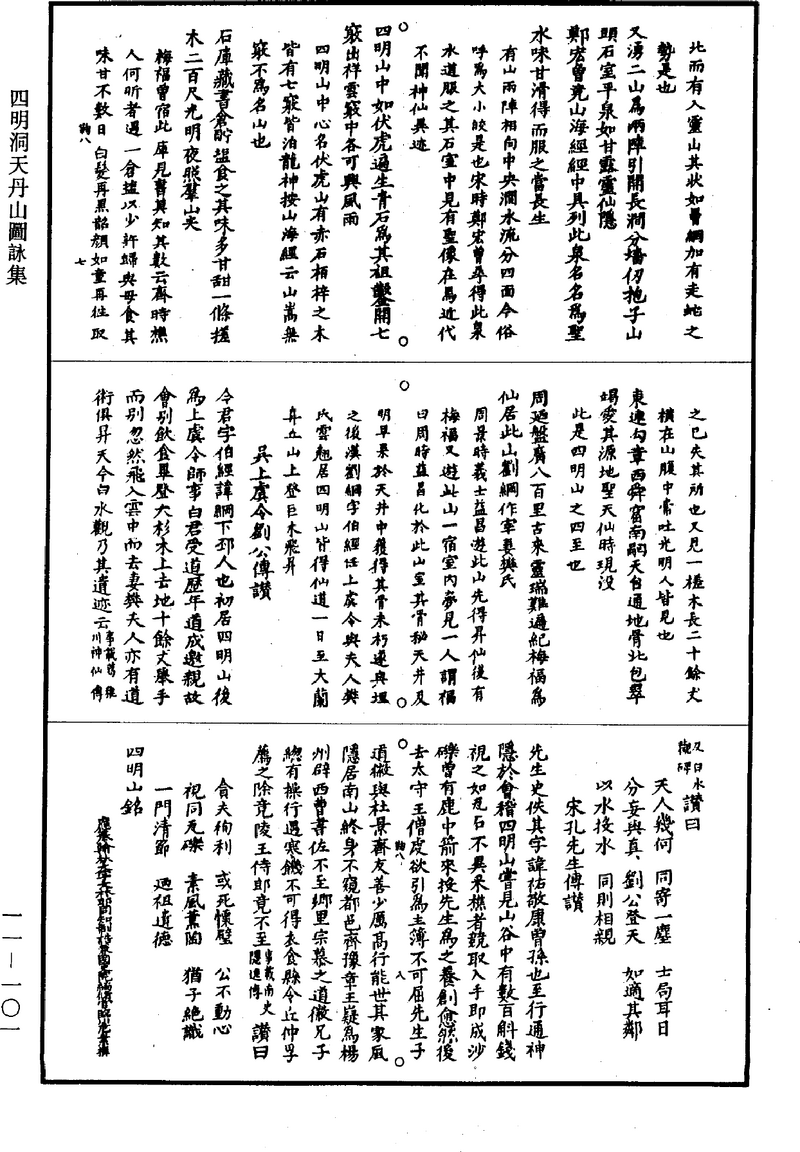 四明洞天丹山圖詠集
此而有入靈山其狀如罾綱加有走蛇之
勢是也
又湧二山為兩陣引開長澗分墻仞抱子山
頭石室平泉如甘露靈仙隱
鄭宏曾竟山海經經中具列此泉名名為聖
水味甘滑得而服之當長生
有山兩陣相向中央澗水流分四面今俗
呼為大小皎是也宋時鄭宏曾尋得此泉
水道服之其石室中見有聖像在焉近代
不聞神仙異迹
四明山中如伏虎通生青石為其祖鑿開七
竅出祥雲竅中各可興風雨
四明山中心名伏虎山有赤石栢梓之木
皆有七竅皆泊龍神按山海經云山嵩無
竅不為名山也
石庫藏書倉貯塩食之其味多甘甜一條援
木二百尺光明夜照羣山尖
梅福曾宿此庫見書莫知其數云齊時樵
人何昕者遇一倉塩以少許歸與母食其
味甘不數日白髮再黑韶顏如童再往取
鞠八
七
之已失其所也又見一槎木長二十餘丈
橫在山腹中常吐光明人皆見也
東連勾章西舜窟南嗣天台通地骨北包翠
竭愛其源地聖天仙時現没
此是四明山之四至也
周迴盤廣八百里古來靈瑞難遍紀梅福為
仙居此山劉綱作宰妻樊氏
周景時義士益昌遊此山先得昇仙後有
梅福又遊此山一宿室內夢見一人謂福
曰周時益昌化於此山里其骨秘天井及
明早果於天井中獲得其骨未朽遂與埋
之後漢劉綱字伯經任上虞令與夫人樊
氏雲翹居四明山皆得仙道一日至大蘭
阜丘山上登巨木飛昇
吳上虞令劉公傳讚
令君字伯經諱綱下邳人也初居四明山後
為上虞令師事白君受道歷年道成邀親故
會别飲食畢登大杉木上去地十餘丈舉手
而别忽然飛入雲中而去妻樊夫人亦有道
術俱昇天今白水觀乃其遺迹云事載葛稚
川神仙傳
及白水
觀碑 讚曰
天人幾何 同寄一塵 士局耳目
分妄與真 劉公登天 如適其鄰
以水投水 同則相親
宋孔先生傳讚
先生史佚其字諱祐敬康曾孫也至行通神
隱於會稽四明山嘗見山谷中有數百斛錢
視之如瓦石不異釆樵者競取入手即成沙
礫曾有鹿中箭來投先生為之養創愈然後
去太守王僧虔欲引為主簿不可屈先生子
鞠八
八
道徽與杜景齊友善少厲高行能世其家風
隱居南山終身不窺都邑齊豫章王嶷為楊
州辟西曹書佐不至鄉里宗慕之道徽兄子
緫有操行遇寒饑不可得衣食縣令丘仲孚
薦之除竟陵王侍郎竟不至事載南史
隱逸傳 讚曰
貪夫徇利 或死懷璧 公不動心
視同瓦礫 素風薰陶 猶子絶識
一門清節 迺祖遺德
四明山銘